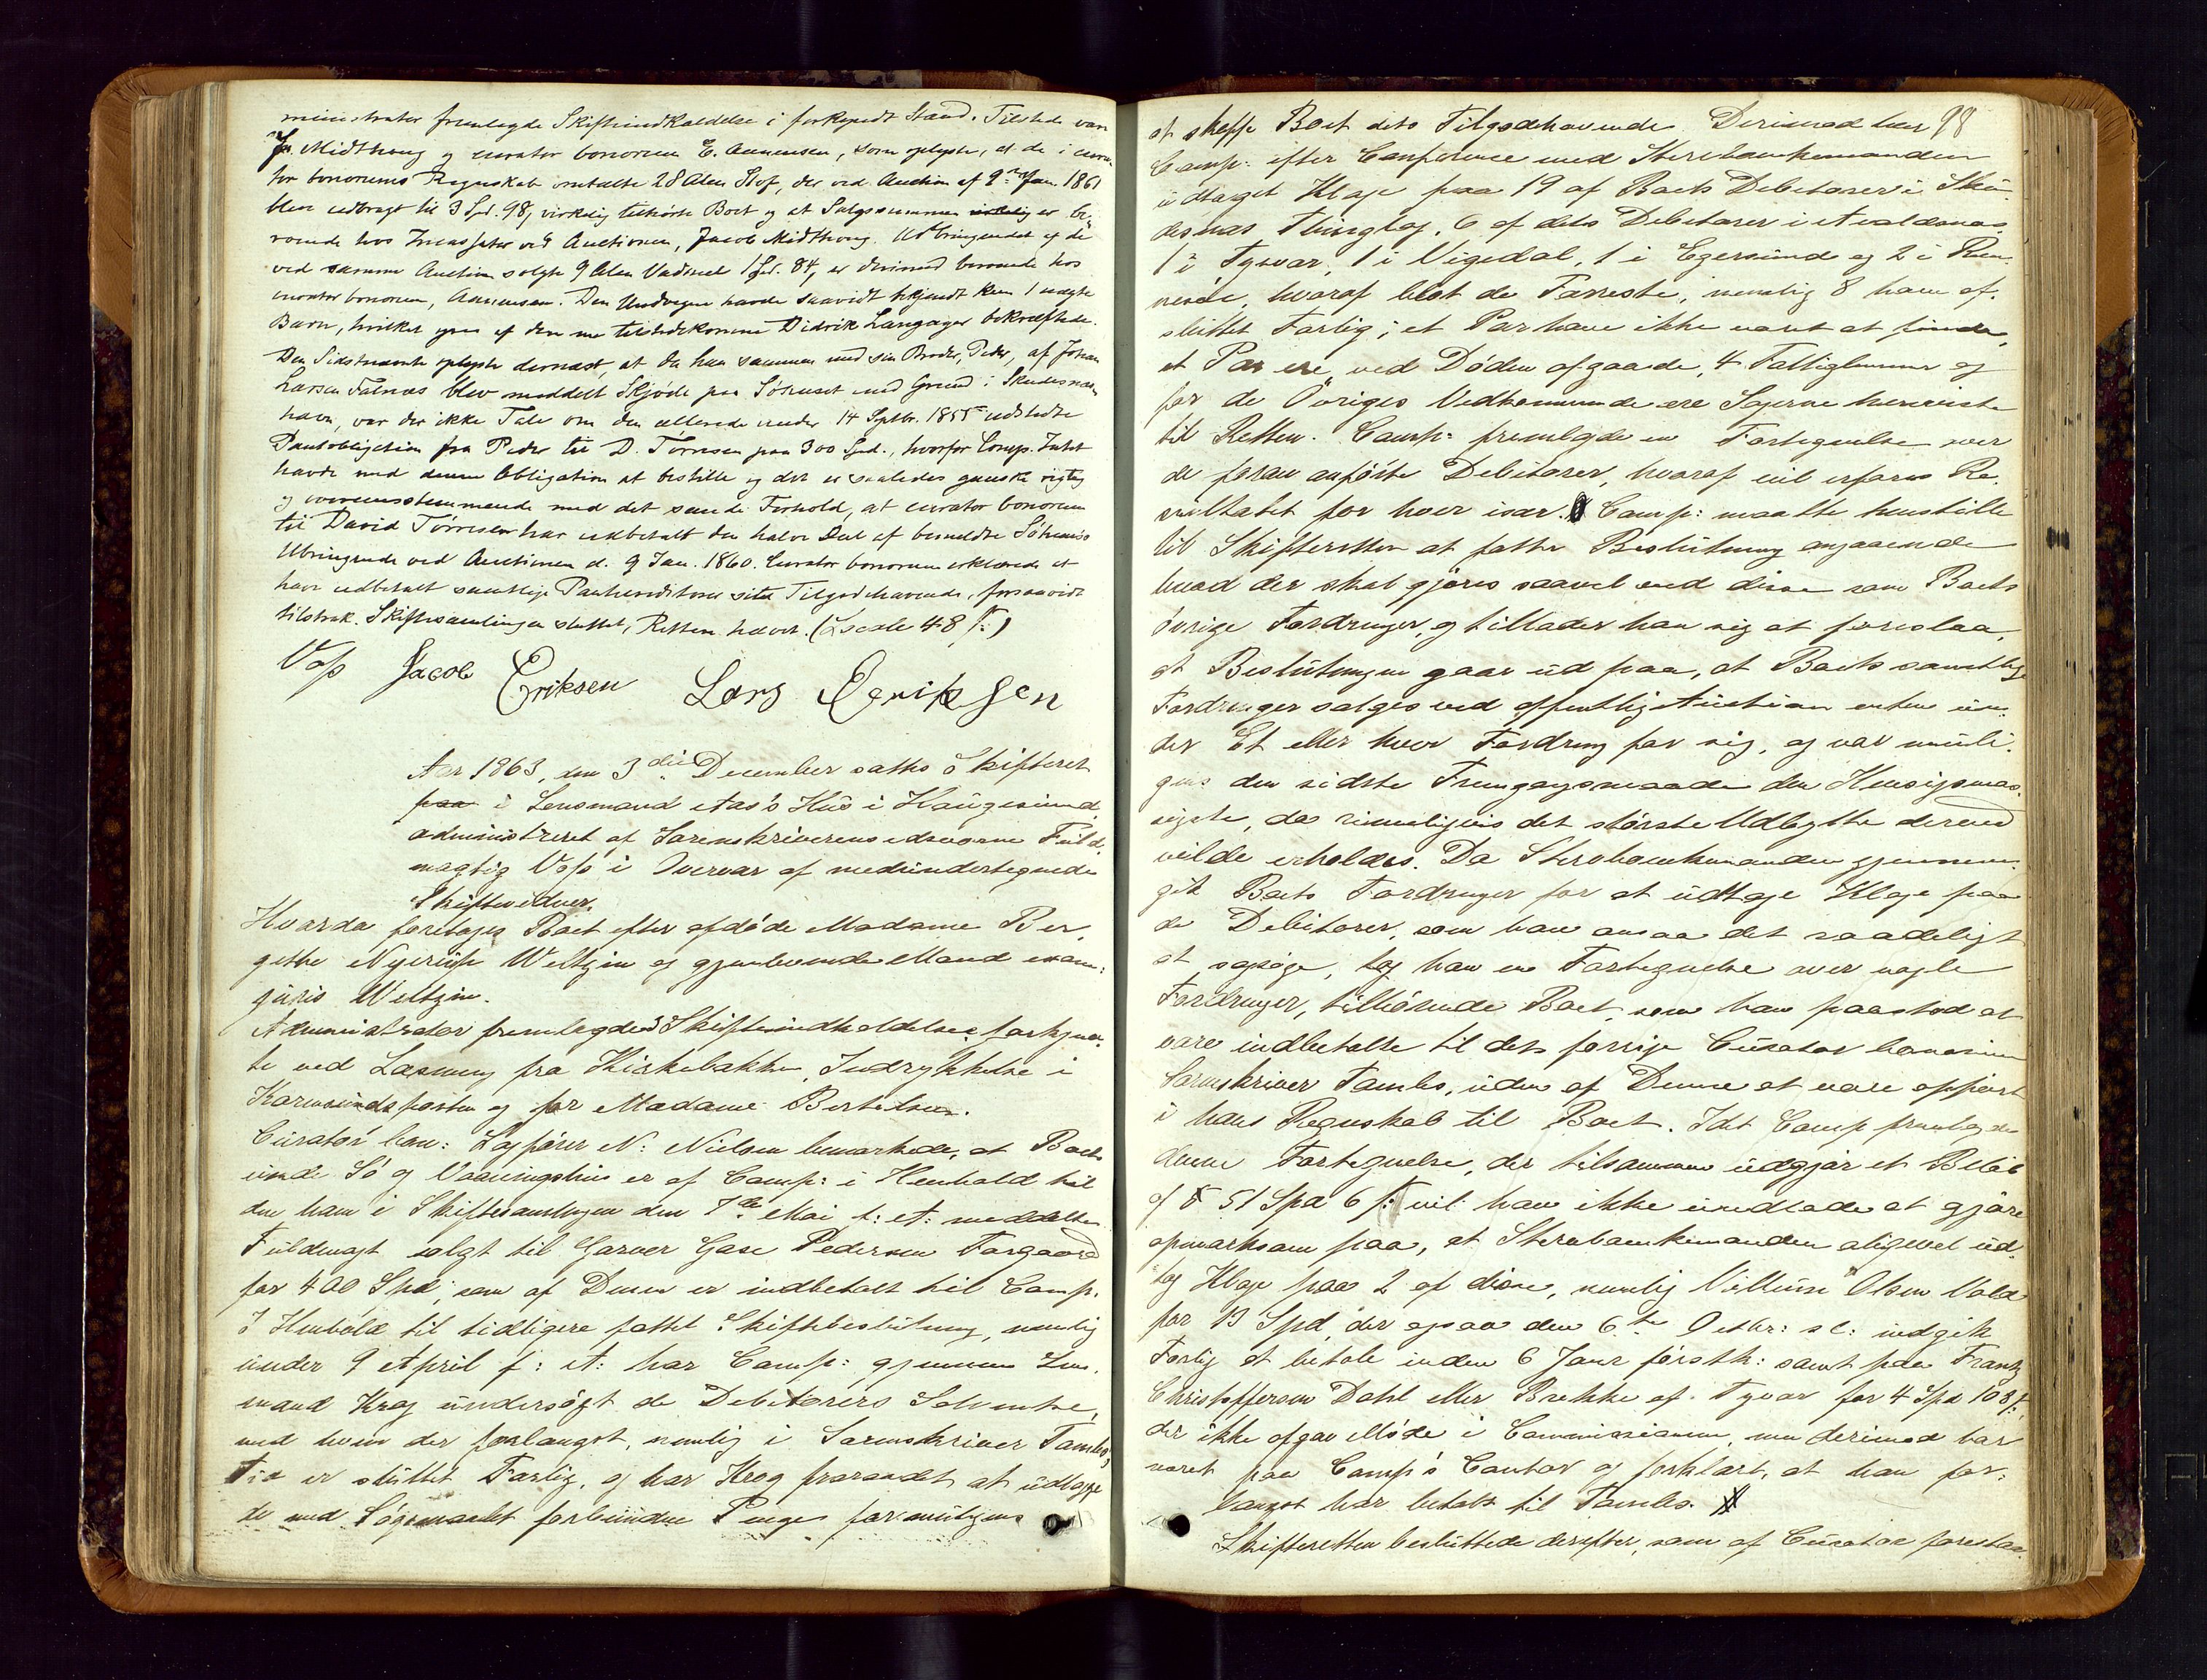 ministrator fremlagde Skifteindkaldelse i forkyndt Stand. Tilstede var
J. Midthong og curator bonorum E. Aanensen, som oplyste, at de i cura-
tor bonorums Regnskab omtalte 28 Alen Stof, der ved Auction af 9de Jan. 1861
blev udbragt til 3 Spd. 98, virkelig tilhørte Boet og at Salgssummen er be-
roende hos Incassator ved Auctionen, Jacob Midthong. Udbringendet af de
ved samme Auction solgte 9 Alen Vadmel 1 Spd. 84, er derimod beroende hos
curator bonorum, Aanensen. Den Undvegne havde saavidt bekjendt kun 1 uægte
Barn, hvilket ogsaa af den nu tilstedekomne Didrik Langager bekræftede.
Den Sidstnævnte oplyste dernæst, at da han sammen med sin Broder, Peder, af Johan
Larsen Falnæs blev meddelt Skjøde paa Søhuset med Grund i Skudesnæs-
havn, var der ikke Tale om den allerede under 14 Septbr. 1855 udstedte
Pantobligation fra Peder til D. Tørresen paa 300 Spd., hvorfor Comp. Intet
havde med denne Obligation at bestille og det er saaledes ganske rigtig
og overensstemmende med det sande Forhold, at curator bonorum
til David Tørresen har udbetalt den halve Deel af bemeldte Søhuus's
Udbringende ved Auctionen d. 9 Jan. 1860. Curator bonorum erklærede at
have udbetalt samtlige Pantecreditorer sit Tilgodehavende, forsaavidt
tilstrak. Skiftesamlingen sluttet, Retten hævet. (Læste 48 ſ:)
Voss Jacob Eriksen Lars Eerikssen
Aar 1863, den 3die December sattes Skifteret
paa i Lensmand Aas's Hus i Haugesund,
administreret af Sorenskriverens edsvorne Fuld-
mægtig Voss i Overvær af medundertegnede
Skiftevidner.
Hvorda foretoges Boet efter afdøde Madame Ber-
gethe Nyerup Weltzin og gjenlevende Mand exam:
juris Weltzin.
Administrator fremlagde 3 Skifteindkaldelser forkyn-
te ved Læsning fra Kirkebakken, Indrykkelse i
Karmsundsposten og for Madame Bertelsen.
Curator bon: Sagfører N: Nielsen bemærkede, at Boets
iinde Sø og Vaaningshus er af Comp: i Henhold til
den ham i Skiftesamlingen den 7de Mai f: A: meddelte
Fuldmagt solgt til Garver Gase Pedersen Fargaard
for 400 Spd, som af Denne er indbetalt til Comp.
I Henhold til tidligere fattet Skiftebeslutning, nemlig
under 9 April f: A: har Comp: gjennem Lens-
mand Krog undersøgt de Debitorers Solventse,
med hvem der forlængst, nemlig i Sorenskriver Tambs's
Tid er sluttet Forlig, og har Krog fraraadet at udlægge
de med Søgsmaalet forbundne Penge formentligens
98
at skaffe Boet dets Tilgodehavende. Derimod har
Comp: efter Conference med Sterbboenkemanden
udtaget Klage paa 19 af Boets Debitorer i Sku-
desnæs Thinglag, 6 af dets Debitorer i Avaldsnæs
1 i Tysvær, 1 i Vigedal, 1 i Egersund og 2 i Ren-
nesøe, hvoraf blot de Færreste, nemlig 8 have af-
sluttet Forlig; et Par have ikke været at finde,
et Par ere ved Døden afgaaede, 4 Fattiglemmer og
for de Øvriges Vedkommende ere Sagerne henviste
til Retten. Comp: fremlagde en Fortegnelse over
de foran anførte Debitorer, hvoraf vil erfares Re-
sultatet for hver især. Comp: maatte henstille
til Skifteretten at fatte Beslutning angaaende
hvad der skal gjøres saavel med disse som Boets
øvrige Fordringer, og tillader han sig at foreslaa,
at Beslutningen gaar ud paa, at Boets samtlige
Fordringer sælges ved offentlig Auction enten un-
der Et eller hver Fordring for sig, og var menli-
gens den sidste Fremgangsmaade den Hensigtsmæs-
sigste, da rimeligvis det største Udbytte derved
vilde erholdes. Da Sterbboenkemanden gjennem-
gik Boets Fordringer for at udtage Klage paa
de Debitorer, som han ansaa det raadeligt
at sagsøge, tog han en Fortegnelse over nogle
Fordringer, tilhørende Boet, som han paastod at
være indbetalte til dets forrige Curator bonorum
Sorenskriver Tambs, uden af Denne at være opført
i hans Regnskab til Boet. Idet Comp fremlagde
denne Fortegnelse, der tilsammen udgjør et Beløb
af 51 Spd 6 ſ: vil han ikke undlade at gjøre
opmærksom paa, at Sterbboenkemanden aligevel ud-
tog Klage paa 2 af disse, nemlig Villum Olsen Vold
for 13 Spd, der ogsaa den 6te Octbr: sl: indgik
Forlig at betale inden 6 Janr førstk: samt paa Frantz
Christoffersen Dahl eller Brekke af Tysvær for 4 Spd 108 ſ:,
der ikke afgav Møde i Commissionen, men derimod har
været paa Comp's Contor og forklart, at han for-
længst har betalt til Tambs.
Skifteretten besluttede derefter, som af Curator foreslaa-